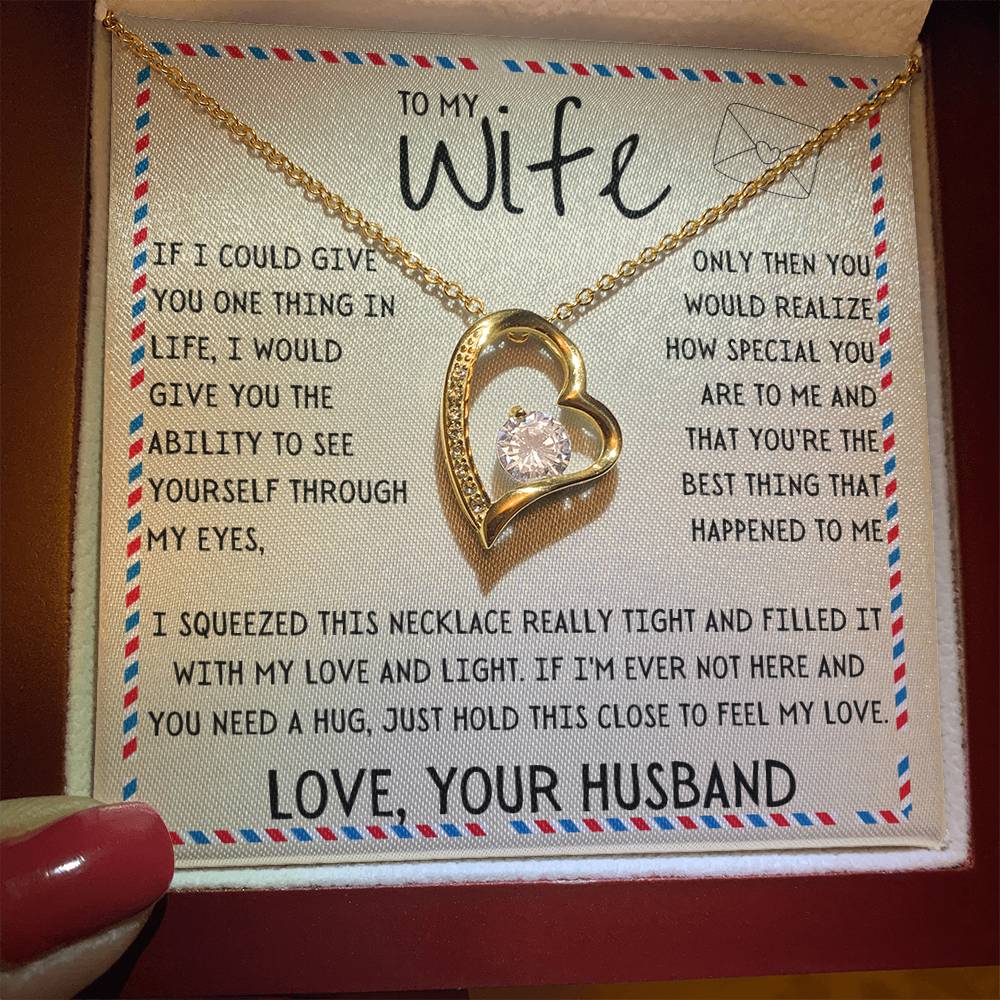 TO MY
Wife
IF I COULD GIVE
YOU ONE THING IN
LIFE, I WOULD
GIVE YOU THE
ABILITY TO SEE
YOURSELF THROUGH
MY EYES,
ONLY THEN YOU
WOULD REALIZE
HOW SPECIAL YOU
ARE TO ME AND
THAT YOU'RE THE
BEST THING THAT
HAPPENED TO ME
I SQUEEZED THIS NECKLACE REALLY TIGHT AND FILLED IT
WITH MY LOVE AND LIGHT. IF I'M EVER NOT HERE AND
YOU NEED A HUG, JUST HOLD THIS CLOSE TO FEEL MY LOVE.
LOVE, YOUR HUSBAND